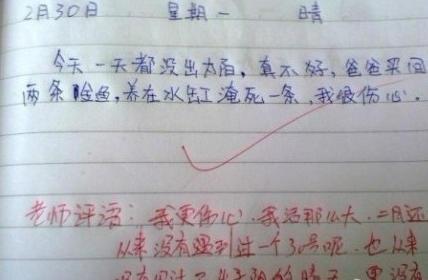 2月30日 星期一 晴
今天一天都没出太阳,真不好,爸爸买回
两条金鱼,养在水缸淹死一条,我很伤心.
老师评语:我更伤心.我活那么大.二月还
从来没有遇到过一个30号呢.也从来
没有见过不出太阳的晴天.更没有